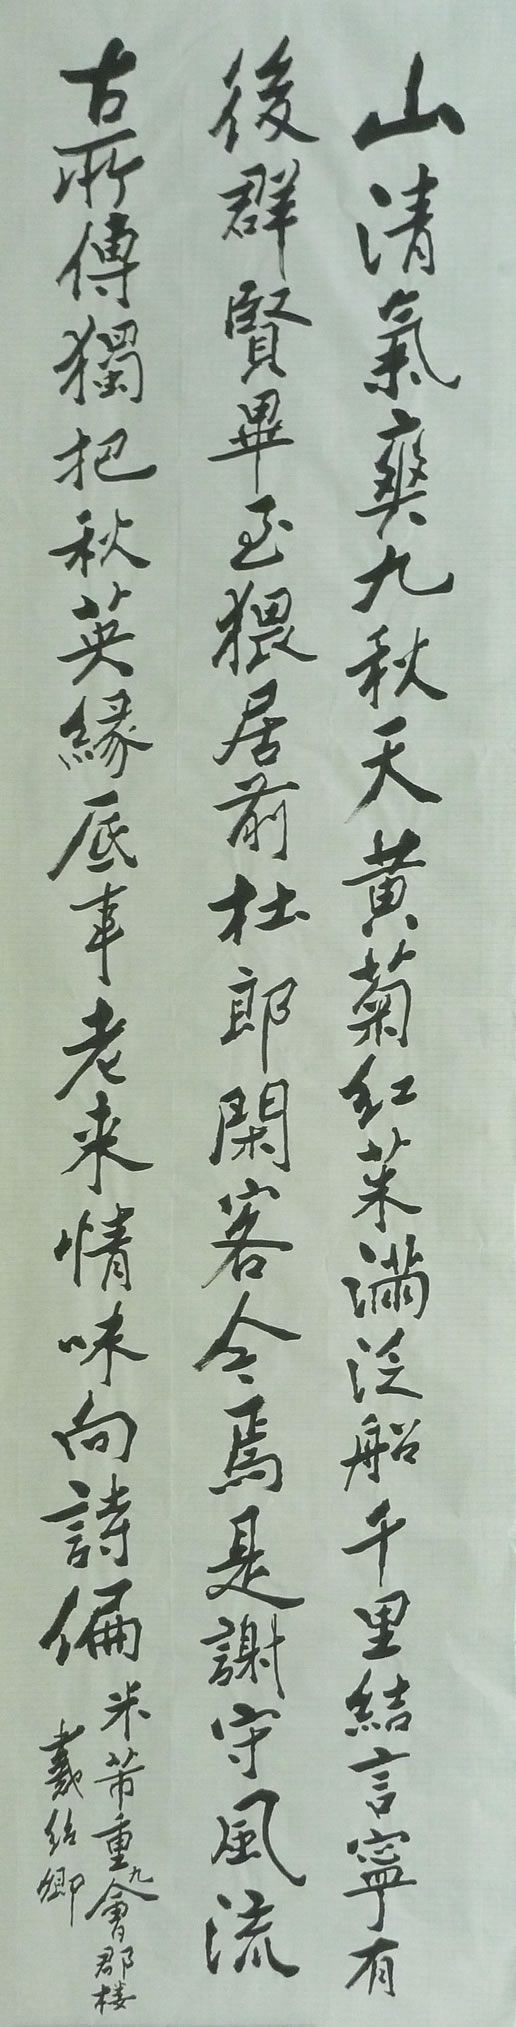 山清氣爽九秋天黄菊红茱滿泛船千里結言寧有
後群賢畢至猥居前杜郎閑客今焉是謝守風流
古所傳獨把秋英緣底事老来情味向詩偏
米芾重九會郡楼
戴紹卿